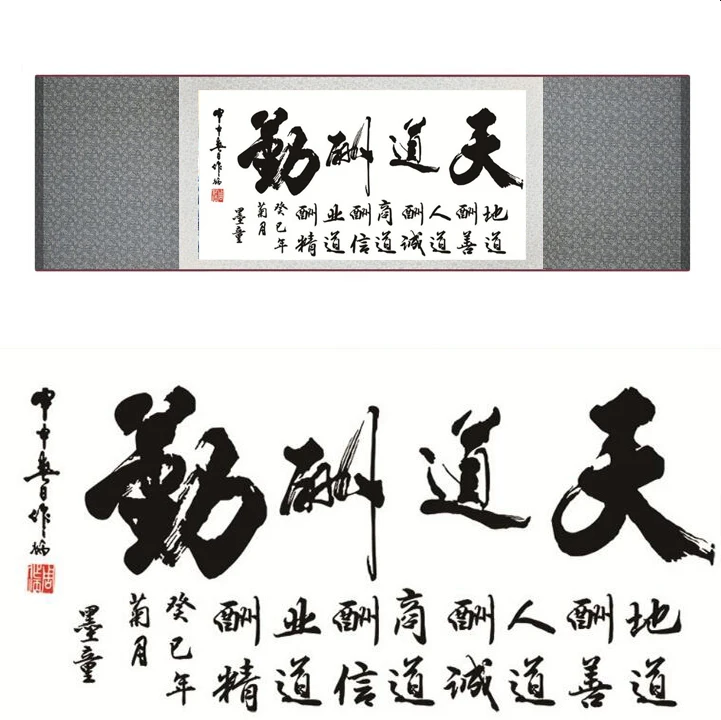 天道酬勤
地道酬善
人道酬诚
商道酬信
业道酬精
癸巳年
菊月
墨童
甲申春日作
天道酬勤
地道酬善
人道酬诚
商道酬信
业道酬精
癸巳年
菊月
墨童
甲申春日作